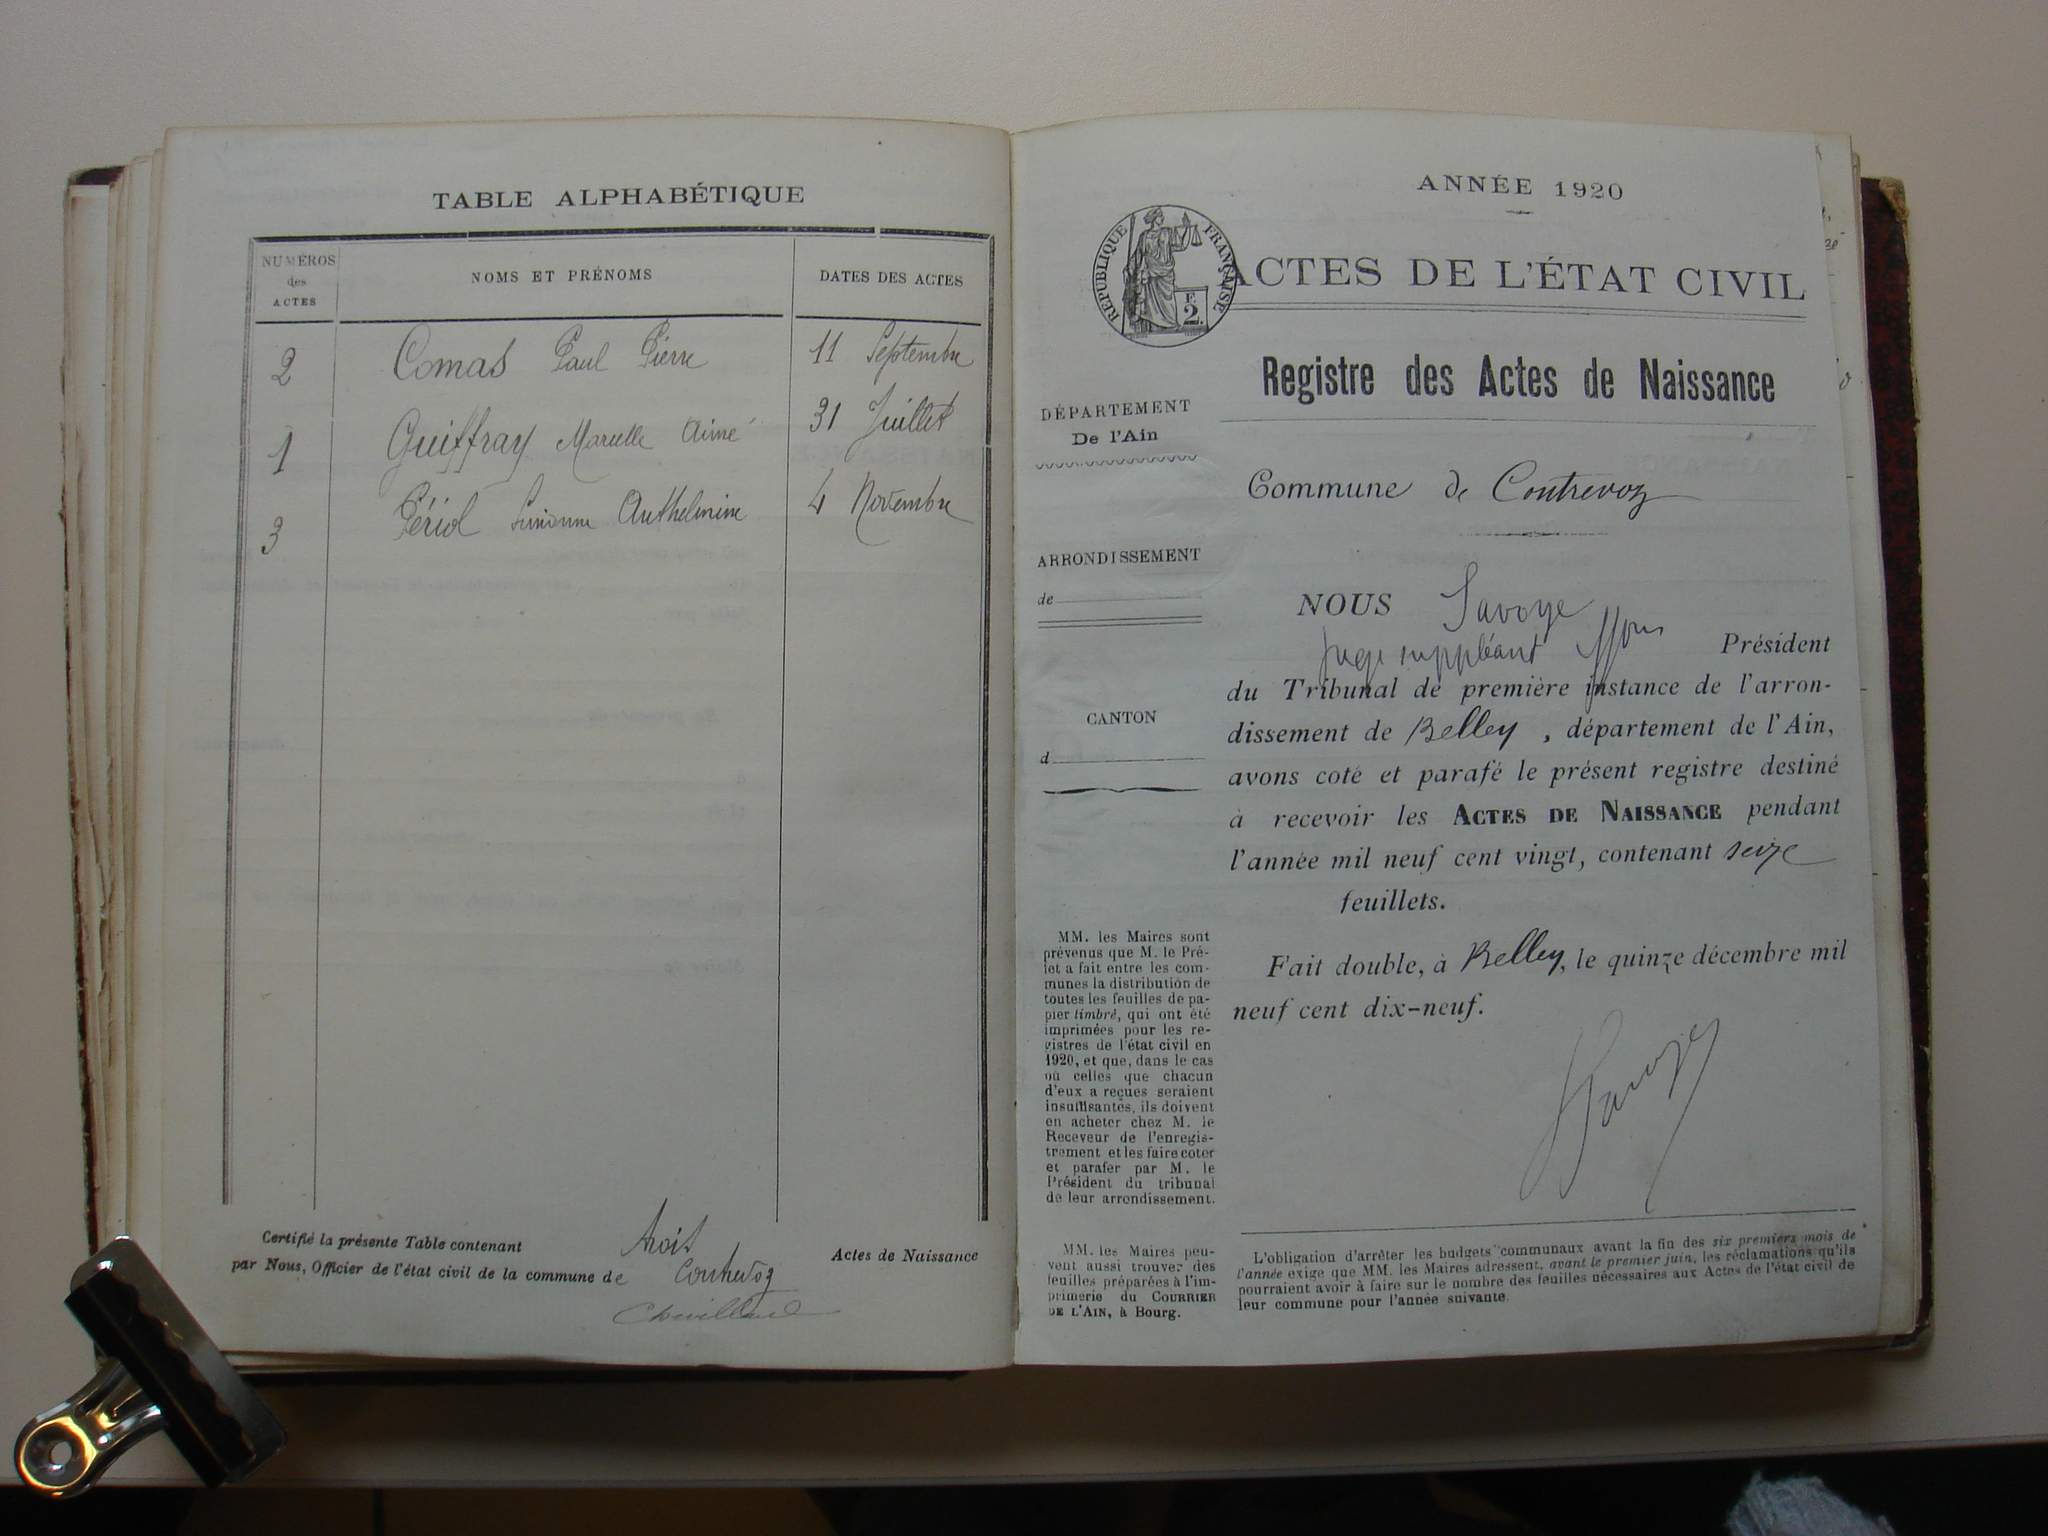 TABLE ALPHABÉTIQUE
NUMÉROS
des
ACTES
NOMS ET PRÉNOMS
DATES DES ACTES
2 Comas Paul Pierre 11 Septembre
1 Guiffray Marcelle Aimé 31 Juillet
3 Périol Anthelmine 4 Novembre
Certifié la présente Table contenant trois Actes de Naissance
par Nous, Officier de l'état civil de la commune de Contrevoz
ANNÉE 1920
RÉPUBLIQUE FRANÇAISE
F.
2.
ACTES DE L'ÉTAT CIVIL
Registre des Actes de Naissance
DÉPARTEMENT
De l'Ain
Commune de Contrevoz
ARRONDISSEMENT
de
CANTON
d
MM. les Maires sont
prévenus que M. le Pré-
fet a fait entre les com-
munes la distribution de
toutes les feuilles de pa-
pier timbré, qui ont été
imprimées pour les re-
gistres de l'état civil en
1920, et que, dans le cas
où celles que chacun
d'eux a reçues seraient
insuffisantes, ils doivent
en acheter chez M. le
Receveur de l'enregis-
trement et les faire coter
et parafer par M. le
Président du tribunal
de leur arrondissement.
MM. les Maires peu-
vent aussi trouver des
feuilles préparées à l'im-
primerie du COURRIER
DE L'AIN, à Bourg.
NOUS Savoye
Juge suppléant ffons Président
du Tribunal de première instance de l'arron-
dissement de Belley, département de l'Ain,
avons coté et parafé le présent registre destiné
à recevoir les ACTES DE NAISSANCE pendant
l'année mil neuf cent vingt, contenant seize
feuillets.
Fait double, à Belley, le quinze décembre mil
neuf cent dix-neuf.
Savoye
L'obligation d'arrêter les budgets communaux avant la fin des six premiers mois de
l'année exige que MM. les Maires adressent, avant le premier juin, les réclamations qu'ils
pourraient avoir à faire sur le nombre des feuilles nécessaires aux Actes de l'état civil de
leur commune pour l'année suivante.